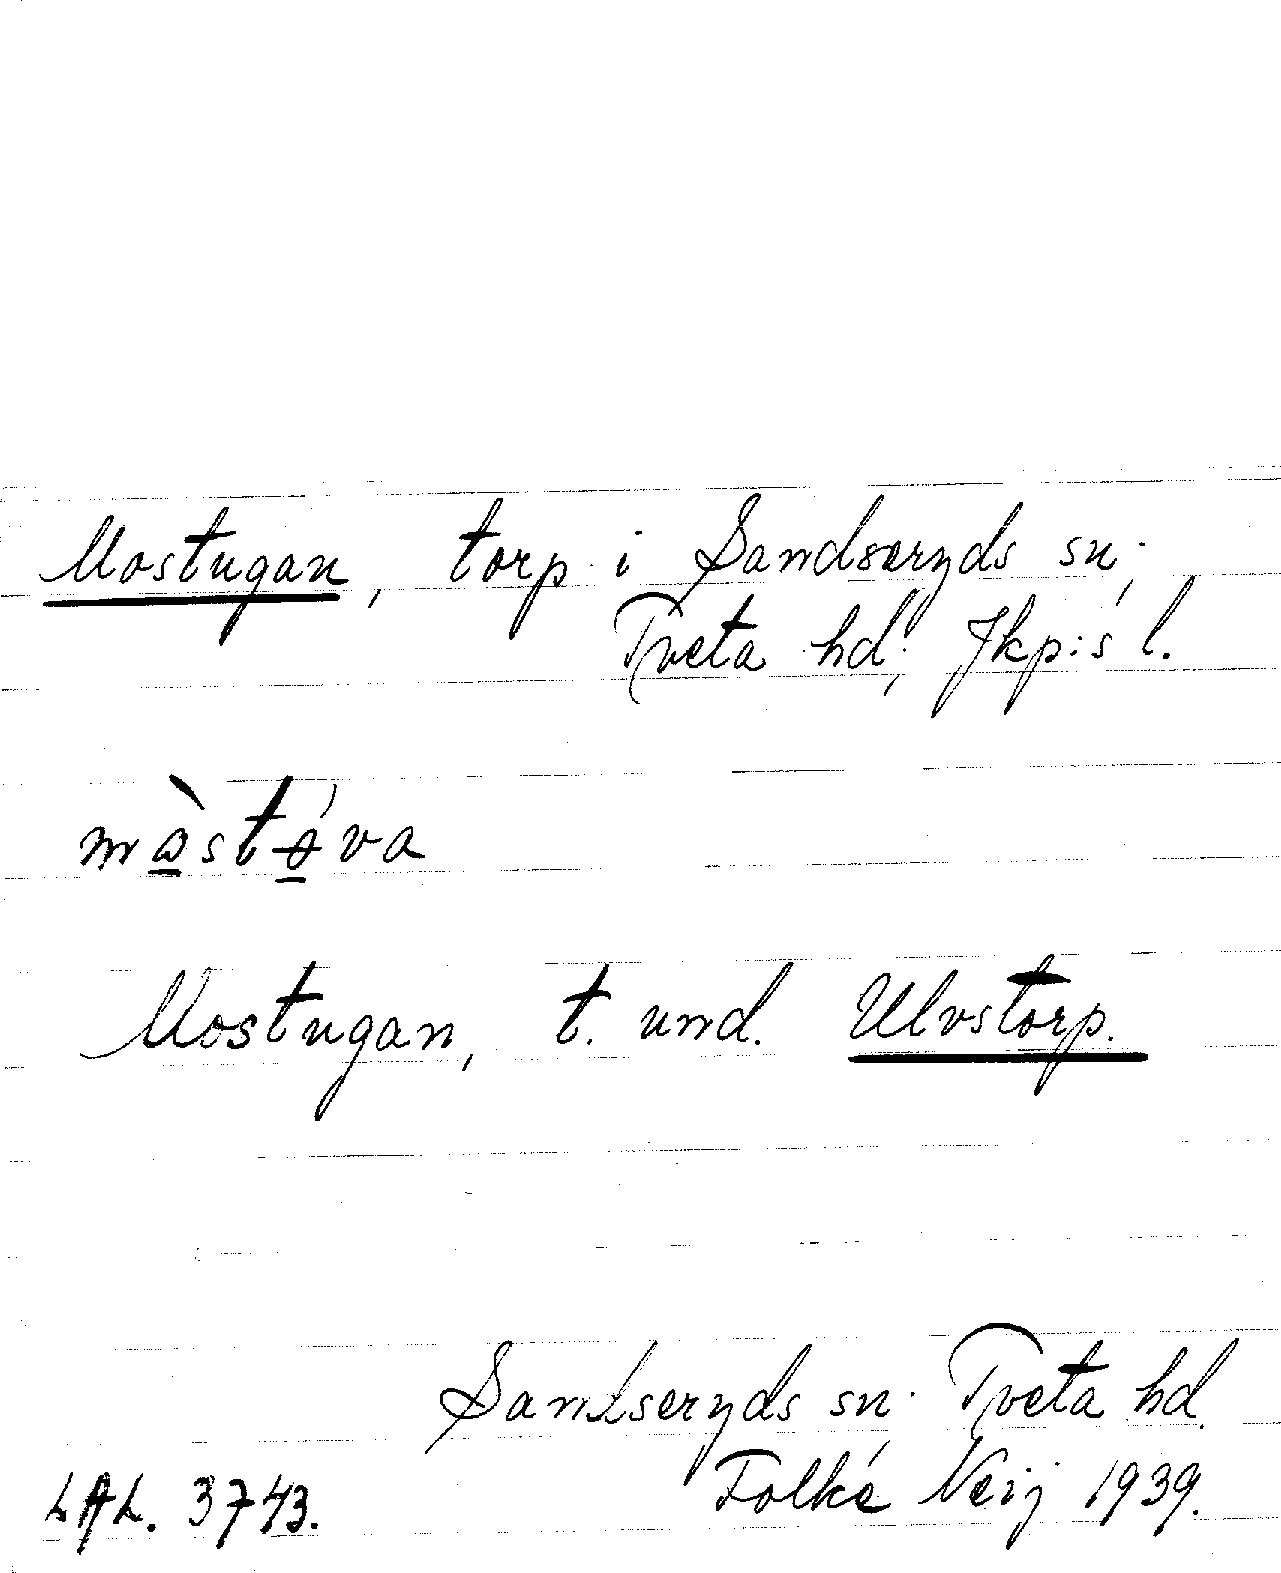 Mostugan, torp i Sandseryds sn,
Tveta hd, Jkp:s l.
Mostugan, t. und. Ulvstorp.
Sandseryds sn. Tveta hd.
Folke Neij 1939.
LAL. 3743.